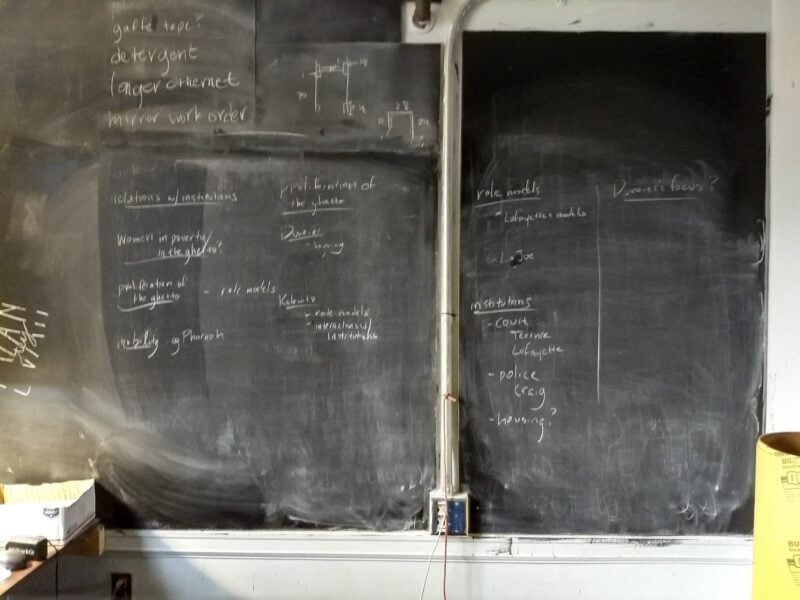 gaffe tape?
detergent
longer ethernet
mirror work order
relations w/ institutions
Women in poverty/
in the ghetto?
proliferation of
the ghetto - role models
mobility eg Pharaoh
proliferation of
the ghetto
Duneier
- zoning
Kotlowitz
- role models
- interactions w/
institutions
28
21
24
role models
- Lafayette's models
- LaJoe
institutions
- court
Terence
Lafayette
- police
Craig
- housing?
Duneier's focus?